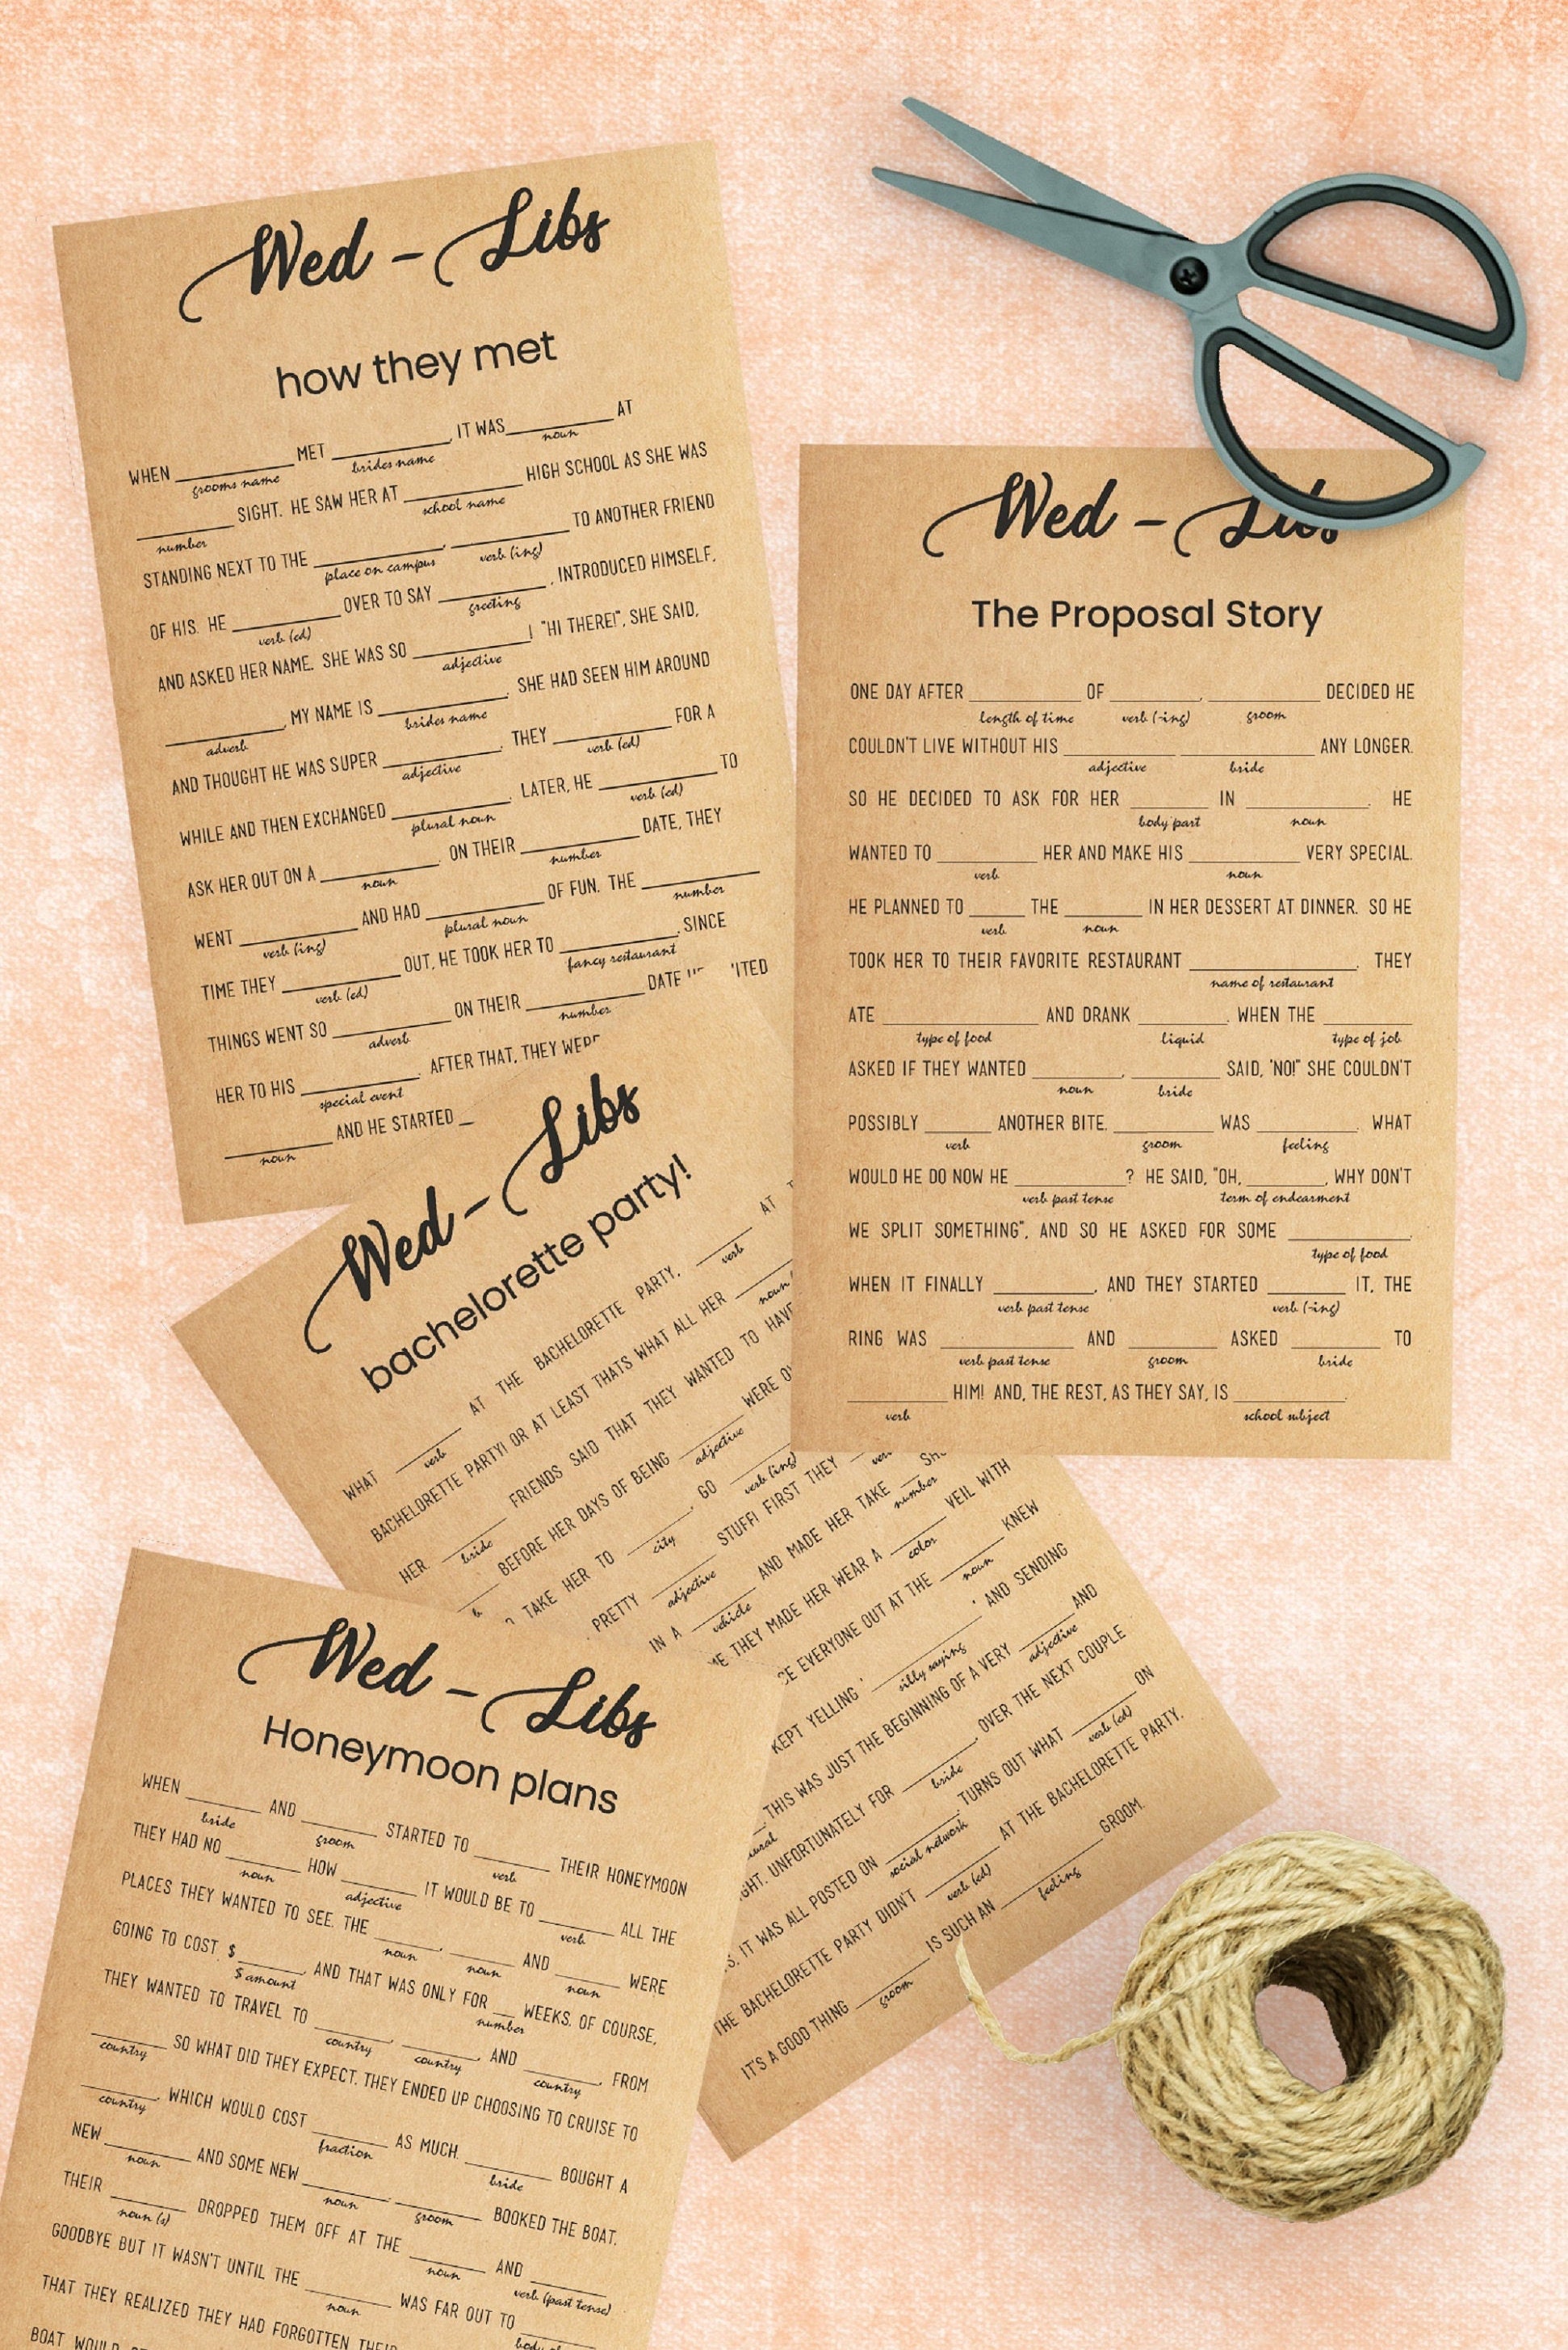 Wed - Libs
how they met
WHEN ________ MET ________, IT WAS ________ AT
grooms name brides name noun
________ SIGHT. HE SAW HER AT ________ HIGH SCHOOL AS SHE WAS
number school name
STANDING NEXT TO THE ________, ________ TO ANOTHER FRIEND
place on campus verb (ing)
OF HIS. HE ________ OVER TO SAY ________, INTRODUCED HIMSELF,
verb (ed) greeting
AND ASKED HER NAME. SHE WAS SO ________! "HI THERE!", SHE SAID,
adjective
________, MY NAME IS ________. SHE HAD SEEN HIM AROUND
adverb brides name
AND THOUGHT HE WAS SUPER ________. THEY ________ FOR A
adjective verb (ed)
WHILE AND THEN EXCHANGED ________. LATER, HE ________ TO
plural noun verb (ed)
ASK HER OUT ON A ________. ON THEIR ________ DATE, THEY
noun number
WENT ________ AND HAD ________ OF FUN. THE ________
verb (ing) plural noun number
TIME THEY ________ OUT, HE TOOK HER TO ________. SINCE
verb (ed) fancy restaurant
THINGS WENT SO ________ ON THEIR ________ DATE
adverb number
HER TO HIS ________. AFTER THAT, THEY WERE
special event
________ AND HE STARTED _
noun
Wed - Libs
The Proposal Story
ONE DAY AFTER ________ OF ________, ________ DECIDED HE
length of time verb (-ing) groom
COULDN'T LIVE WITHOUT HIS ________ ________ ANY LONGER.
adjective bride
SO HE DECIDED TO ASK FOR HER ________ IN ________. HE
body part noun
WANTED TO ________ HER AND MAKE HIS ________ VERY SPECIAL.
verb noun
HE PLANNED TO ____ THE ____ IN HER DESSERT AT DINNER. SO HE
verb noun
TOOK HER TO THEIR FAVORITE RESTAURANT ________. THEY
name of restaurant
ATE ________ AND DRANK ________. WHEN THE ________
type of food liquid type of job
ASKED IF THEY WANTED ________, ________ SAID, "NO!" SHE COULDN'T
noun bride
POSSIBLY ____ ANOTHER BITE. ________ WAS ________. WHAT
verb groom feeling
WOULD HE DO NOW HE ________? HE SAID, "OH, ________, WHY DON'T
verb past tense term of endearment
WE SPLIT SOMETHING", AND SO HE ASKED FOR SOME ________.
type of food
WHEN IT FINALLY ________, AND THEY STARTED ________ IT, THE
verb past tense verb (-ing)
RING WAS ________ AND ________ ASKED ________ TO
verb past tense groom bride
________ HIM! AND, THE REST, AS THEY SAY, IS ________.
verb school subject
Wed - Libs
bachelorette party!
WHAT ________ AT THE BACHELORETTE PARTY, ________ AT
verb verb
BACHELORETTE PARTY! OR AT LEAST THATS WHAT ALL HER ________
noun
HER ________ FRIENDS SAID THAT THEY WANTED TO HAVE
bride
BEFORE HER DAYS OF BEING ________ WERE
adjective
TAKE HER TO ________, GO ________
city verb (ing)
PRETTY ________ STUFF! FIRST THEY ________
adjective
IN A ________ AND MADE HER TAKE ____
vehicle number
THEY MADE HER WEAR A ________ VEIL WITH
color
EVERYONE OUT AT THE ________ KNEW
noun
KEPT YELLING "________" AND SENDING
silly saying
THIS WAS JUST THE BEGINNING OF A VERY ________ AND
adjective
UNFORTUNATELY FOR ________, OVER THE NEXT COUPLE
bride
IT WAS ALL POSTED ON ________. TURNS OUT WHAT ________ ON
social network verb (ed)
THE BACHELORETTE PARTY DIDN'T ________ AT THE BACHELORETTE PARTY.
verb (ed)
IT'S A GOOD THING ________ IS SUCH AN ________ GROOM.
groom feeling
Wed - Libs
Honeymoon plans
WHEN ________ AND ________ STARTED TO ________ THEIR HONEYMOON
bride groom verb
THEY HAD NO ________ HOW ________ IT WOULD BE TO ________ ALL THE
noun adjective verb
PLACES THEY WANTED TO SEE. THE ________, ________ AND ________ WERE
noun noun noun
GOING TO COST $________, AND THAT WAS ONLY FOR __ WEEKS. OF COURSE,
$ amount number
THEY WANTED TO TRAVEL TO ________, ________, AND ________, FROM
country country country
________ SO WHAT DID THEY EXPECT. THEY ENDED UP CHOOSING TO CRUISE TO
country
________, WHICH WOULD COST ________ AS MUCH. ________ BOUGHT A
country fraction bride
NEW ________ AND SOME NEW ________. ________ BOOKED THE BOAT.
noun noun groom
THEIR ________ DROPPED THEM OFF AT THE ________ AND ________
noun (s) noun verb (past tense)
GOODBYE BUT IT WASN'T UNTIL THE ________ WAS FAR OUT TO ________
noun
THAT THEY REALIZED THEY HAD FORGOTTEN THEIR
BOAT WOULD